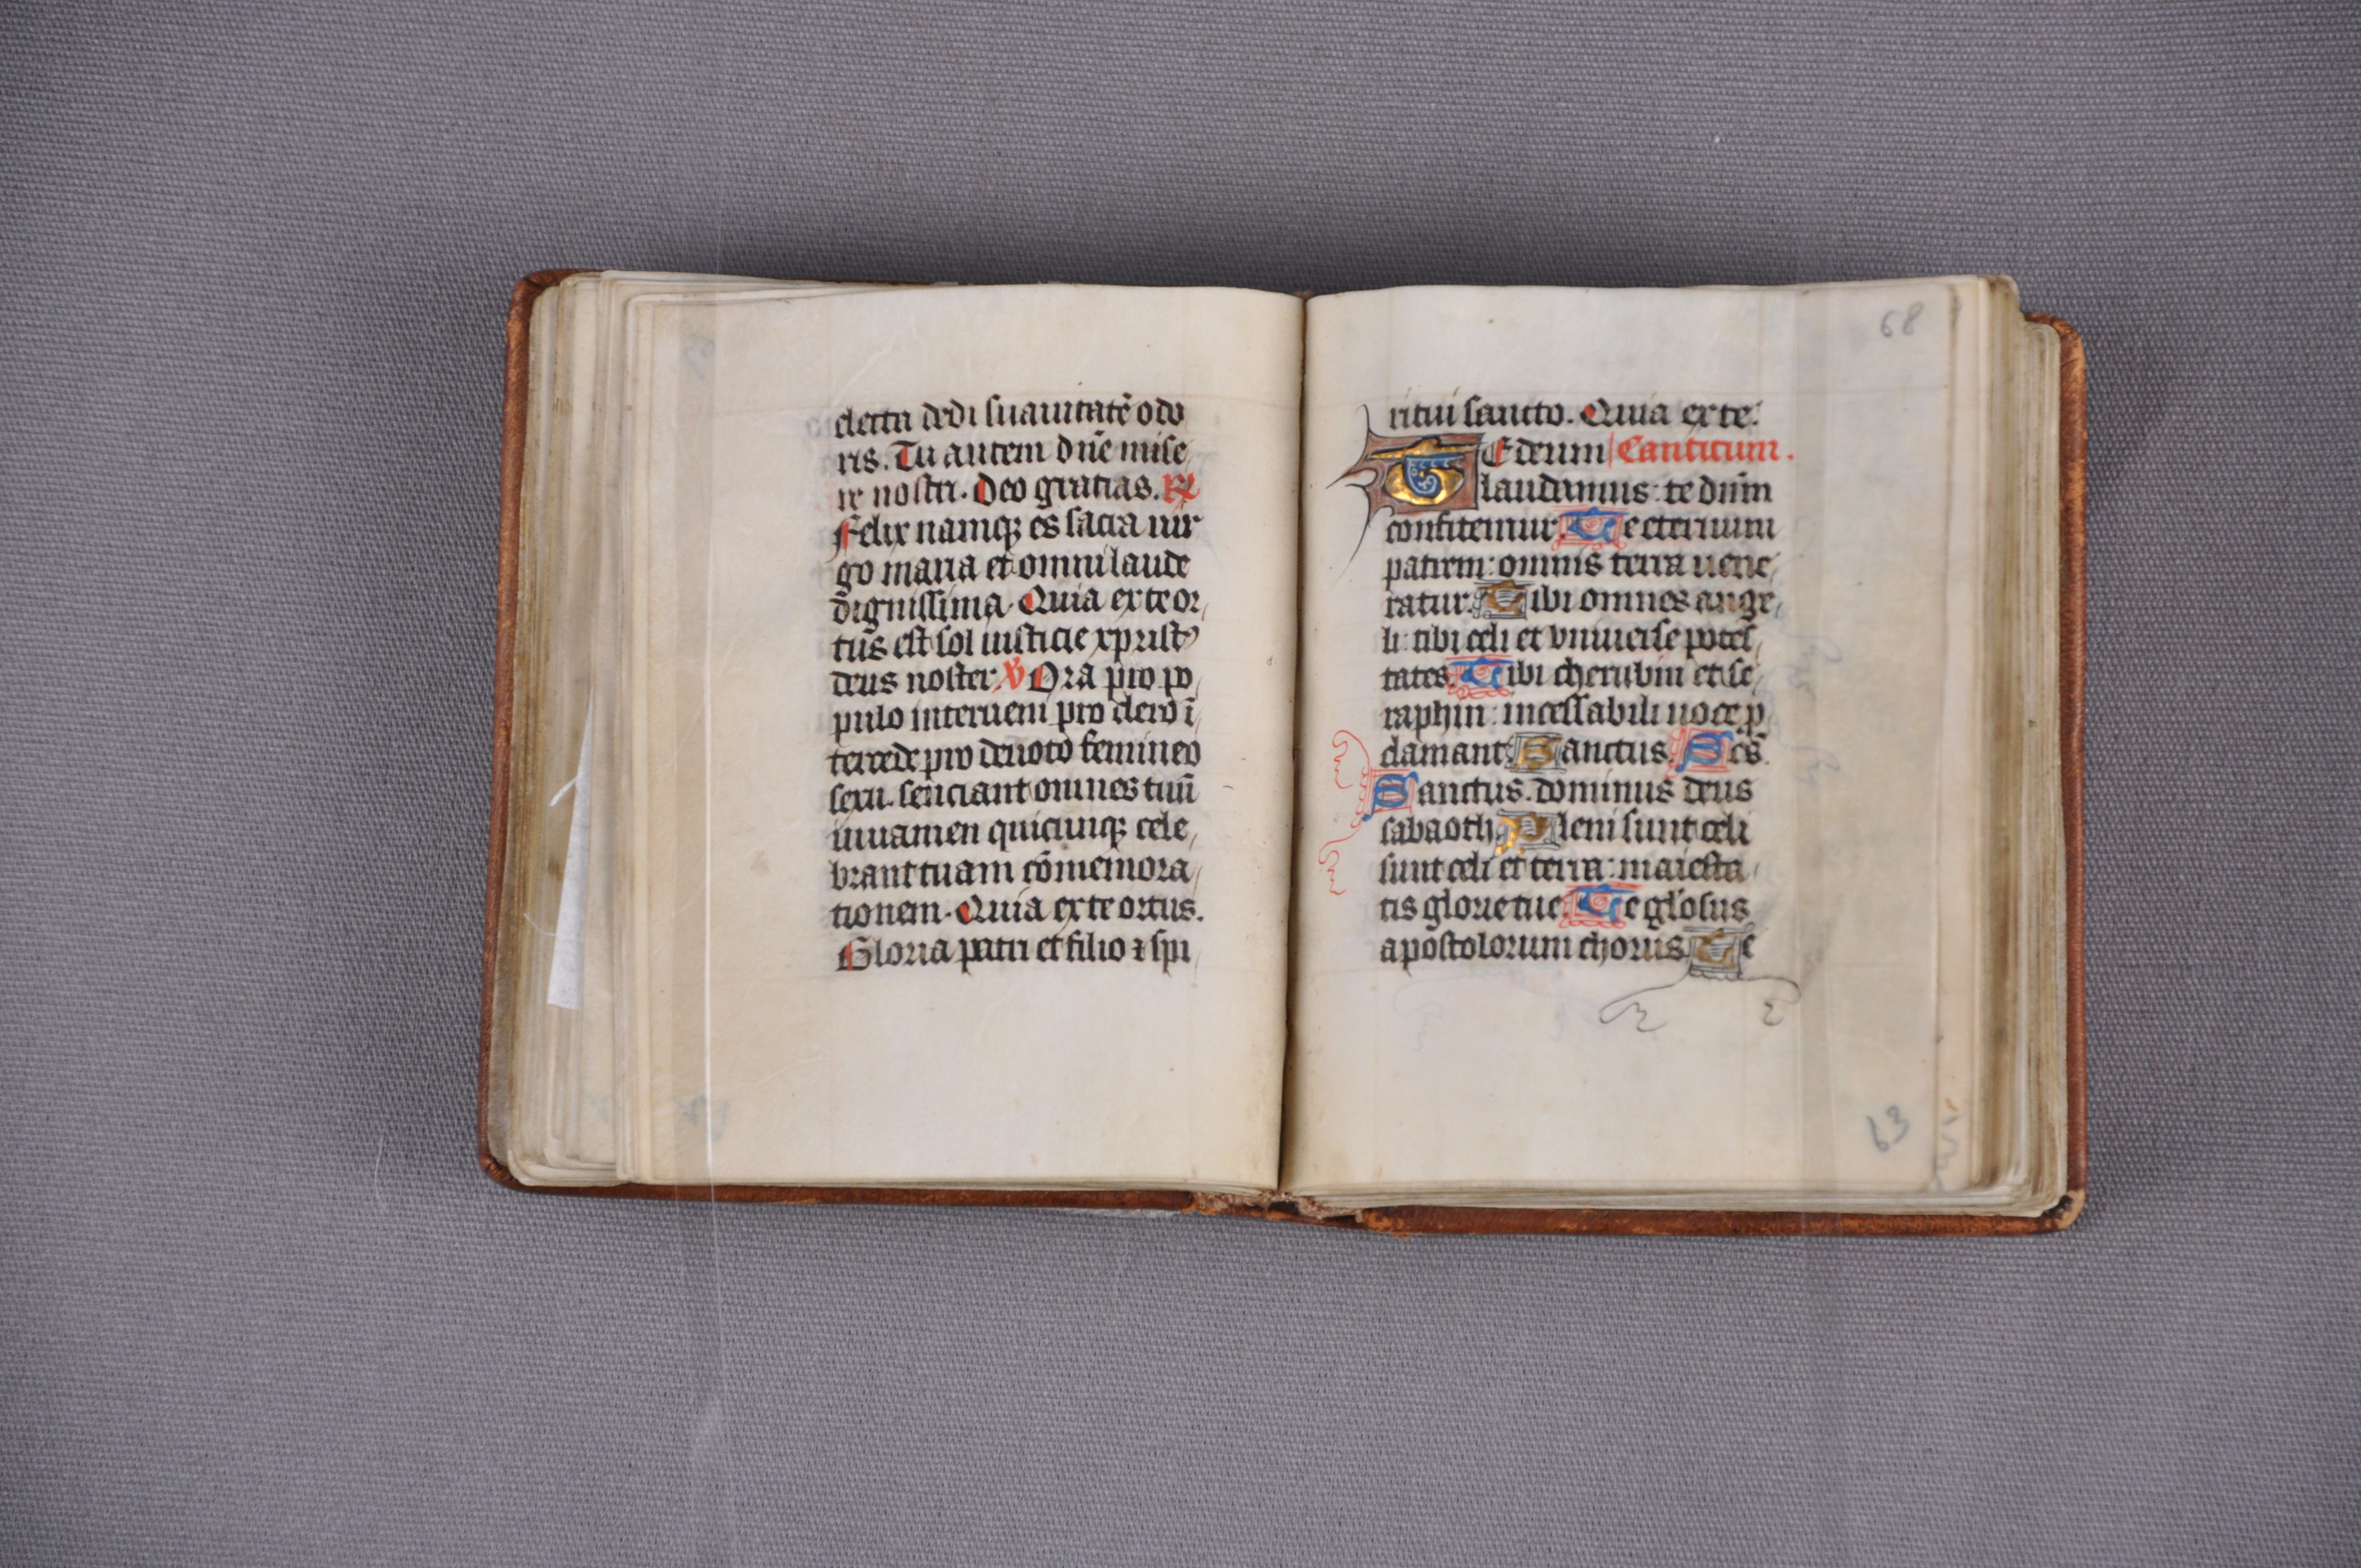 electa dedi suauitatē odo
ris. Tu autem dn̄e mise
re nostri. Deo gratias. ℟
Felix namqꝫ es sacra uir
go maria et omni laude
dignissima. Quia ex te or
tus est sol iusticie xp̄ristꝰ
deus noster. ℣ Ora pro po
pulo interueni pro clero ī
tercede pro deuoto femineo
sexu. senciant omnes tuū
iuuamen quicunqꝫ cele
brant tuam cōmemora
tionem. Quia ex te ortus.
Gloria patri et filio ⁊ spi
68
ritui sancto. Quia ex te.
TE deum Canticum.
laudamus: te dnm̄
confitemur. Te eternum
patrem: omnis terra uene
ratur. Tibi omnes ange
li: tibi celi et vniuerse potes
tates. Tibi cherubin et se
raphin: incessabili uoce p
clamant. Sanctus. Scs̄.
Sanctus. dominus deus
sabaoth. Pleni sunt celi
sunt celi et terra: maiesta
tis glorie tue. Te glosus
apostolorum chorus. Te
63